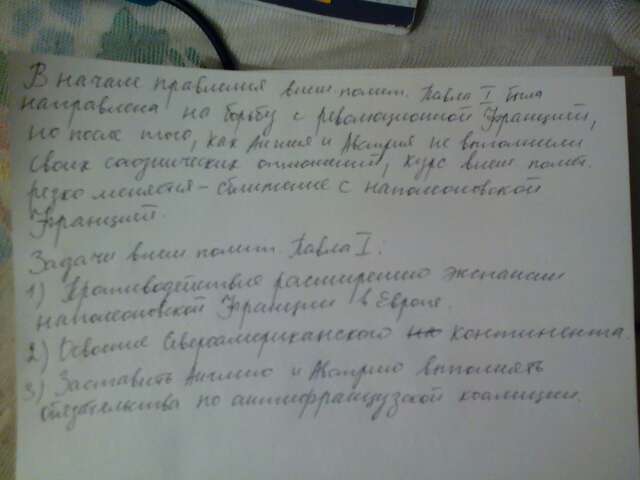 В начале правления внеш полит. Павла I была
направлена на борьбу с революционной Францией,
но после того, как Англия и Австрия не выполнили
своих союзнических отношений, курс внеш полит.
резко меняется – сближение с наполеоновской
Францией.
Задачи внеш полит. Павла I:
1) Противодействие расширению экспансии
наполеоновской Франции в Европе.
2) Освоение Североамериканского на континента.
3) Заставить Англию и Австрию выполнять
обязательства по антифранцузской коалиции.